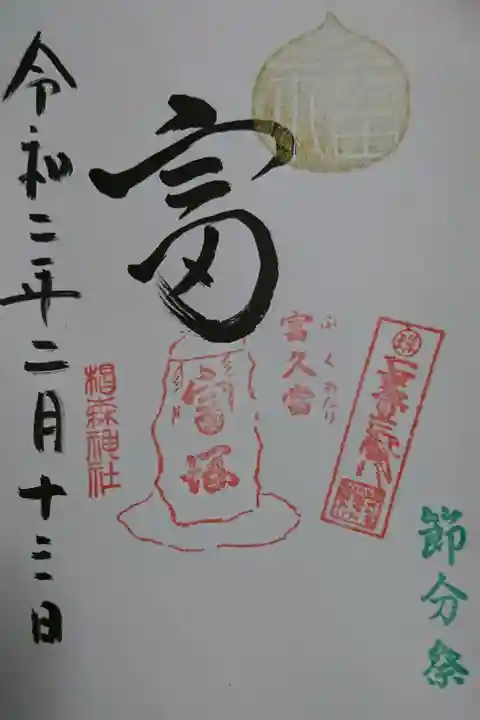 節分祭
富久當
ふくあたり
富
富塚
椙森神社
令和二年二月十三日